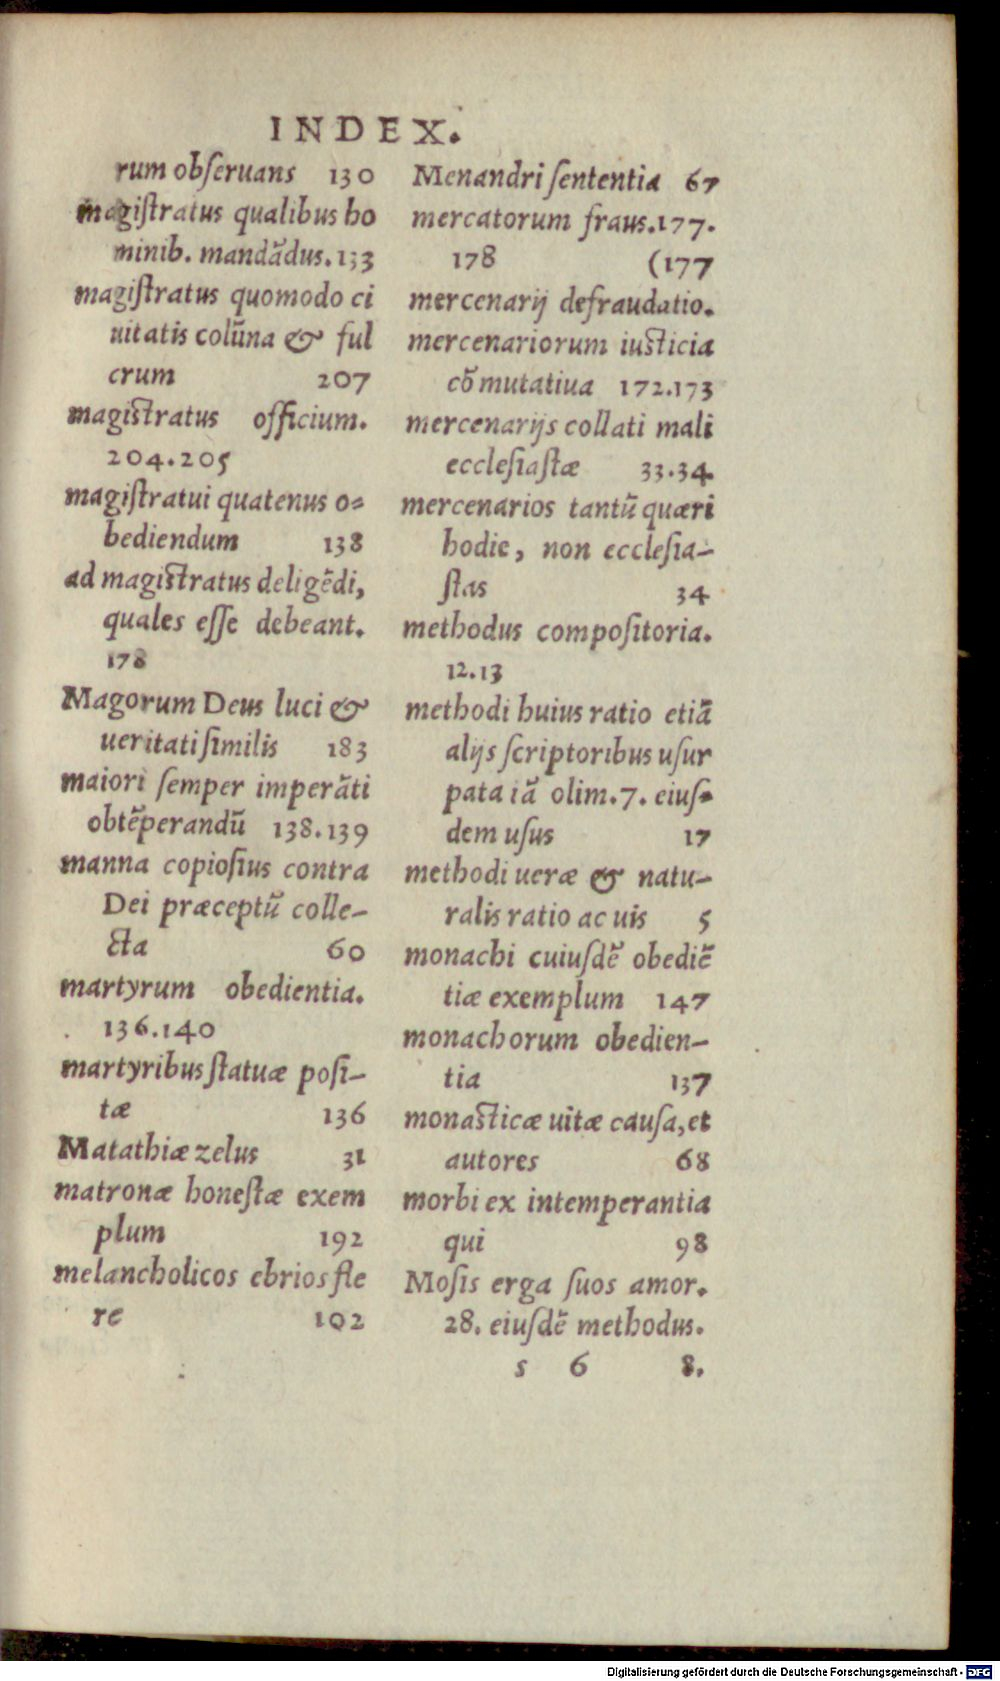 INDEX.
rum obſeruans 130
magiſtratus qualibus ho
minib. mandādus. 133
magiſtratus quomodo ci
uitatis colūna & ful
crum 207
magistratus officium.
204.205
magiſtratui quatenus o-
bediendum 138
ad magistratus deligēdi,
quales eſſe debeant.
178
Magorum Deus luci &
ueritati ſimilis 183
maiori ſemper imperāti
obtēperandū 138.139
manna copioſius contra
Dei præceptū colle-
cta 60
martyrum obedientia.
136.140
martyribus ſtatuæ poſi-
tæ 136
Matathiæ zelus 31
matronæ honeſtæ exem
plum 192
melancholicos ebrios fle
re 102
Menandri ſententia 67
mercatorum fraus. 177.
178 (177
mercenarij defraudatio.
mercenariorum iusticia
cōmutatiua 172.173
mercenarijs collati mali
eccleſiaſtæ 33.34
mercenarios tantū quæri
hodie, non eccleſia-
ſtas 34
methodus compoſitoria.
12.13
methodi huius ratio etiā
alijs ſcriptoribus uſur
pata iā olim. 7. eiuſ-
dem uſus 17
methodi ueræ & natu-
ralis ratio ac uis 5
monachi cuiuſdē obediē
tiæ exemplum 147
monachorum obedien-
tia 137
monasticæ uitæ cauſa, et
autores 68
morbi ex intemperantia
qui 98
Moſis erga ſuos amor.
28. eiuſdē methodus.
s 6 8.
Digitalisierung gefördert durch die Deutsche Forschungsgemeinschaft - DFG